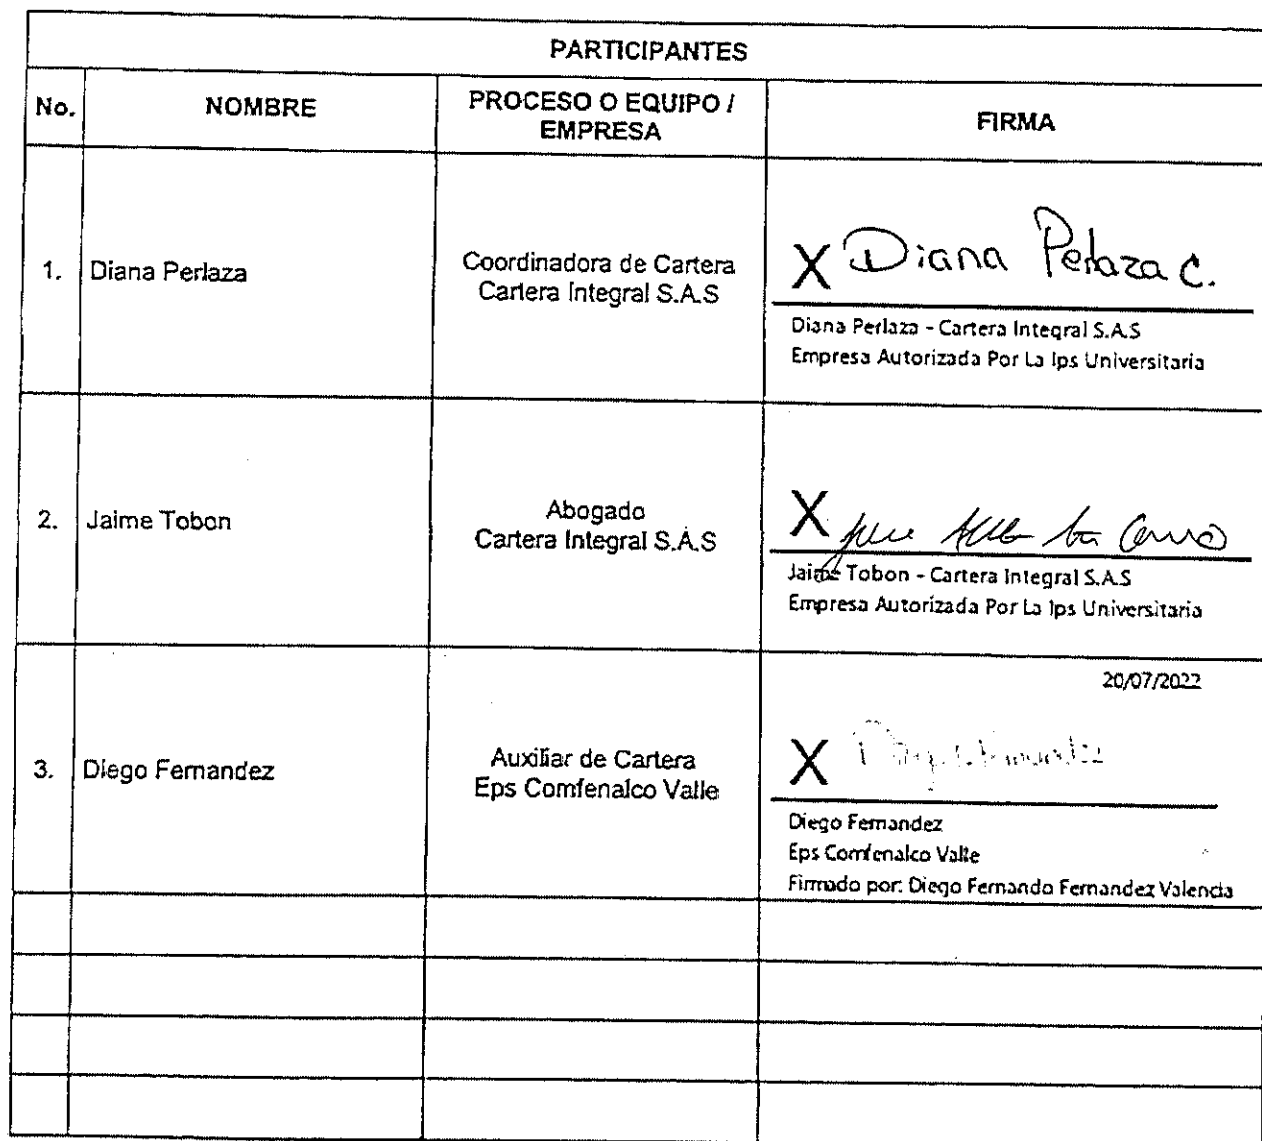 PARTICIPANTES
No.
NOMBRE
PROCESO O EQUIPO /
EMPRESA
FIRMA
1.
Diana Perlaza
Coordinadora de Cartera
Cartera Integral S.A.S
X Diana Perlaza C.
Diana Perlaza - Cartera Integral S.A.S
Empresa Autorizada Por La Ips Universitaria
2.
Jaime Tobon
Abogado
Cartera Integral S.A.S
X
Jaime Tobon - Cartera Integral S.A.S
Empresa Autorizada Por La Ips Universitaria
3.
Diego Fernandez
Auxiliar de Cartera
Eps Comfenalco Valle
20/07/2022
X
Diego Fernandez
Eps Comfenalco Valle
Firmado por: Diego Fernando Fernandez Valencia